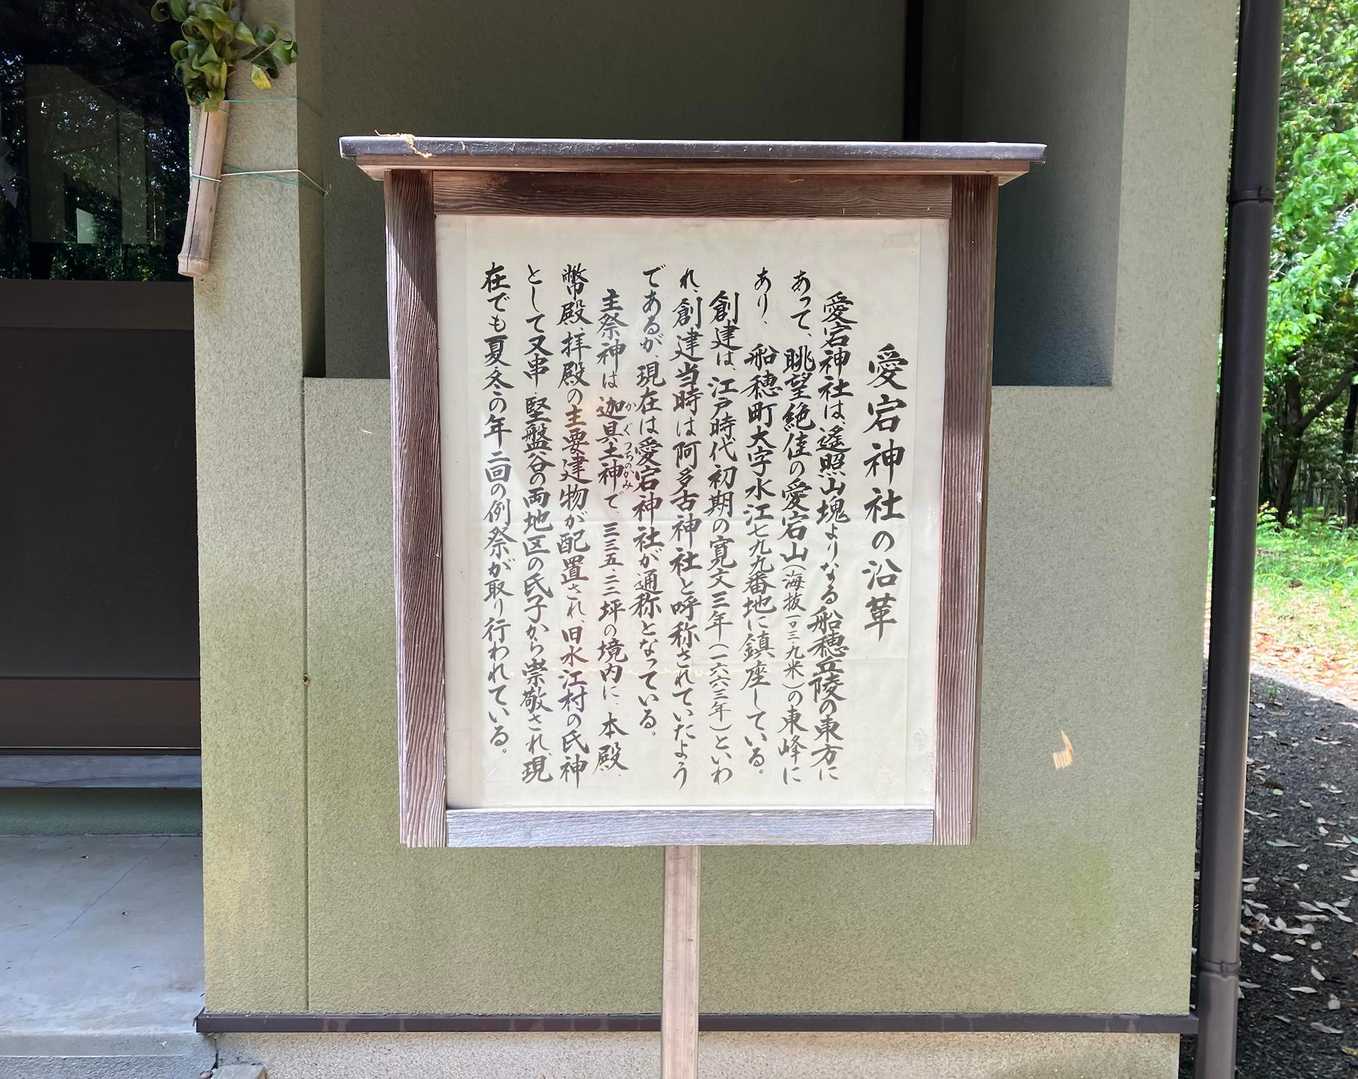 愛宕神社の沿革
愛宕神社は遙照山塊よりなる船穂丘陵の東方に
あって、眺望絶佳の愛宕山(海抜一〇三.九米)の東峰に
あり、船穂町大字水江七九九番地に鎮座している。
創建は、江戸時代初期の寛文三年(一六六三年)といわ
れ、創建当時は阿多古神社と呼称されていたよう
であるが、現在は愛宕神社が通称となっている。
主祭神は迦具土神で、三三五.二二坪の境内に、本殿、
かぐつちのかみ
幣殿、拝殿の主要建物が配置され、旧水江村の氏神
として又串、堅盤谷の両地区の氏子から崇敬され、現
在でも夏、冬の年二回の例祭が取り行われている。